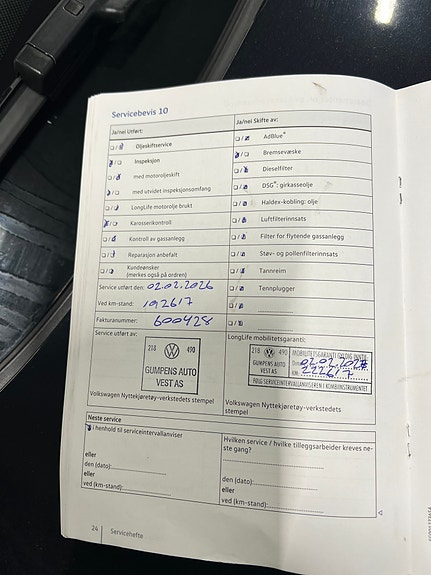 Servicebevis 10
Ja/nei Utført:
Oljeskiftservice
Inspeksjon
med motoroljeskift
med utvidet inspeksjonsomfang
LongLife motorolje brukt
Karosserikontroll
Kontroll av gassanlegg
Reparasjon anbefalt
Kundeønsker
(merkes også på ordren)
Service utført den: 02.02.2026
Ved km-stand: 192617
Fakturanummer: 600428
Ja/nei Skifte av:
AdBlue®
Bremsevæske
Dieselfilter
DSG®: girkasseolje
Haldex-kobling: olje
Luftfilterinnsats
Filter for flytende gassanlegg
Støv- og pollenfilterinnsats
Tannreim
Tennplugger
Service utført av:
218 490
GUMPENS AUTO
VEST AS
Volkswagen Nyttekjøretøy-verkstedets
stempel
LongLife mobilitetsgaranti:
218 490
GUMPENS AUTO
VEST AS
MOBILITETSGARANTI
Den
KM 222617
FØLG SERVICEINTERVALLANVISEREN I KOMBIINSTRUMENTET
Volkswagen Nyttekjøretøy-verkstedets
stempel
Neste service
i henhold til serviceintervallanviser
eller
den (dato):
eller
ved (km-stand):
Hvilken service / hvilke tilleggsarbeider kreves ne-
ste gang?
eller
den (dato):
eller
ved (km-stand):
24 Servicehefte